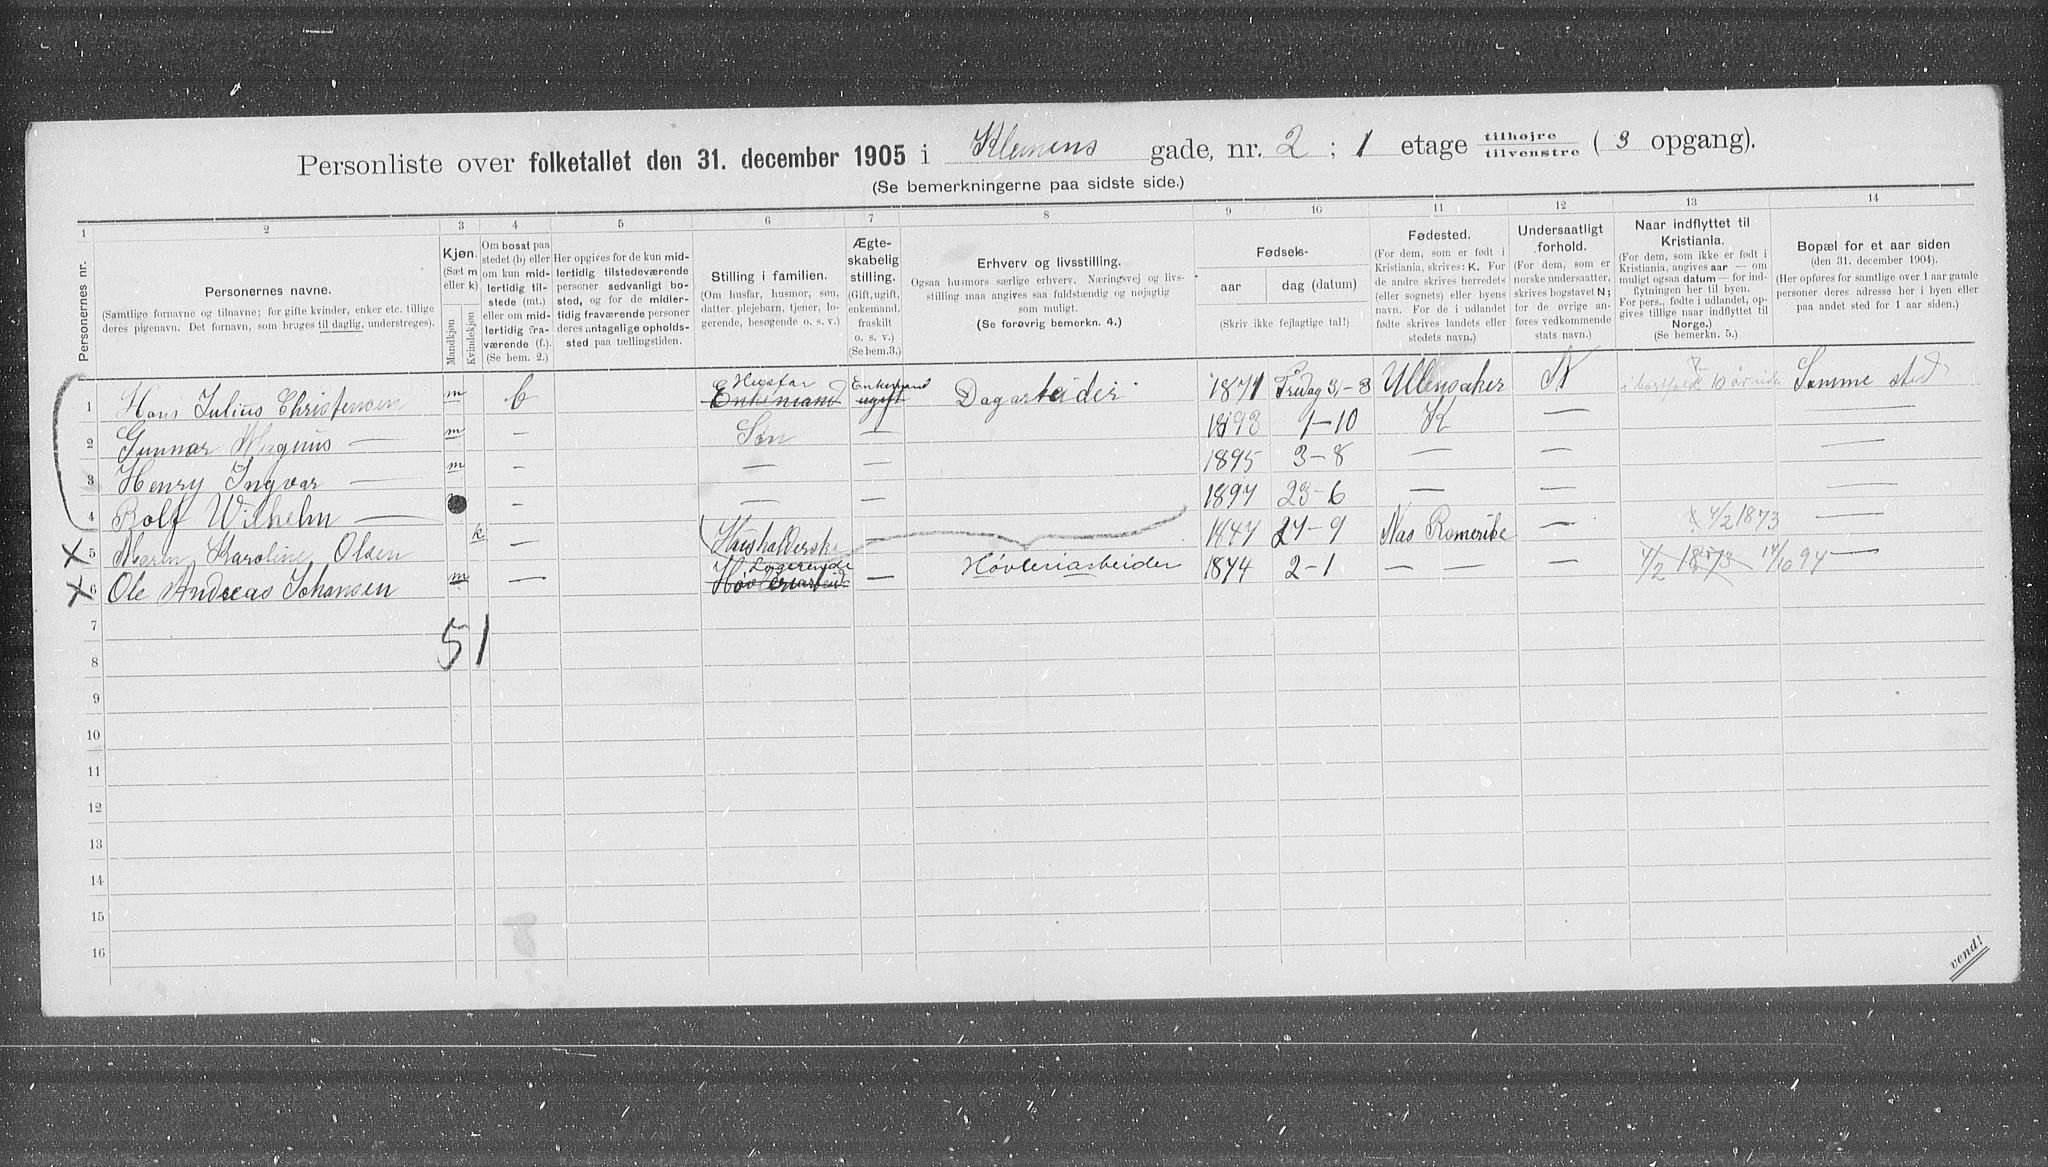 Personliste over folketallet den 31. december 1905 i Klemens gade, nr. 2 ; 1 etage tilhøjre / tilvenstre ( 3 opgang).
(Se bemerkningerne paa sidste side.)
1 2 3 4 5 6 7 8 9 10 11 12 13 14
Personernes nr.
Personernes navne.
(Samtlige fornavne og tilnavne; for gifte kvinder, enker etc. tillige
deres pigenavn. Det fornavn, som bruges til daglig, understreges).
Kjøn.
(Sæt m
eller k)
Mandkjøn
Kvindekjøn
Om bosat paa
stedet (b) eller
om kun mid-
lertidig til-
stede (mt.)
eller om mid-
lertidig fra-
værende (f.).
(Se bem. 2.)
Her opgives for de kun mid-
lertidig tilstedeværende
personer sedvanligt bo-
sted, og for de midler-
tidig fraværende personer
deres antagelige opholds-
sted paa tællingstiden.
Stilling i familien.
(Om husfar, husmor, søn,
datter, plejebarn, tjener, lo-
gerende, besøgende o. s. v.)
Ægte-
skabelig
stilling.
(Gift, ugift,
enkemand,
fraskilt
o. s. v.)
(Se bem.3.)
Erhverv og livsstilling.
Ogsaa husmors særlige erhverv. Næringsvej og livs-
stilling maa angives saa fuldstændig og nøjagtig
som muligt.
(Se forøvrig bemerkn. 4.)
Fødsels-
aar dag (datum)
(Skriv ikke fejlagtige tal!)
Fødested.
(For dem, som er født i
Kristiania, skrives: K. For
de andre skrives herredets
(eller sognets) eller byens
navn. For de i udlandet
fødte skrives landets eller
stedets navn.)
Undersaatligt
forhold.
(For dem, som er
norske undersaatter,
skrives bogstavet N;
for de øvrige an-
føres vedkommende
stats navn.)
Naar indflyttet til
Kristiania.
(For dem, som ikke er født i
Kristiania, angives aar — om
muligt ogsaa datum — for ind-
flytningen her til byen.
For pers., fødte i udlandet, op-
gives tillige naar indflyttet til
Norge.)
(Se bemerkn. 5.)
Bopæl for et aar siden
(den 31. december 1904).
(Her opføres for samtlige over 1 aar gamle
personer deres adresse her i byen eller
paa andet sted for 1 aar siden.)
Husfar Enkemand
1 Hans Julius Christensen m b Enkemand ugift Dagarbeider 1871 Fredag 3-3 Ullensaker N Samme sted
2 Gunnar Magnus — m — Søn — 1893 1-10 K — —
3 Henry Ingvar — m — — — 1895 3-8 — — —
4 Rolf Wilhelm — — — — 1897 23-6 — — —
5 Maren Karoline Olsen k — Husholderske — 1847 27-9 Nas Romerike — 4/2 1873 —
Logerende
6 Ole Andreas Johansen m — Høvleriarbeid — Høvleriarbeider 1874 2-1 — — — 4/2 1873 14/10 94 —
7
5 1
8
9
10
11
12
13
14
15
16
vend!